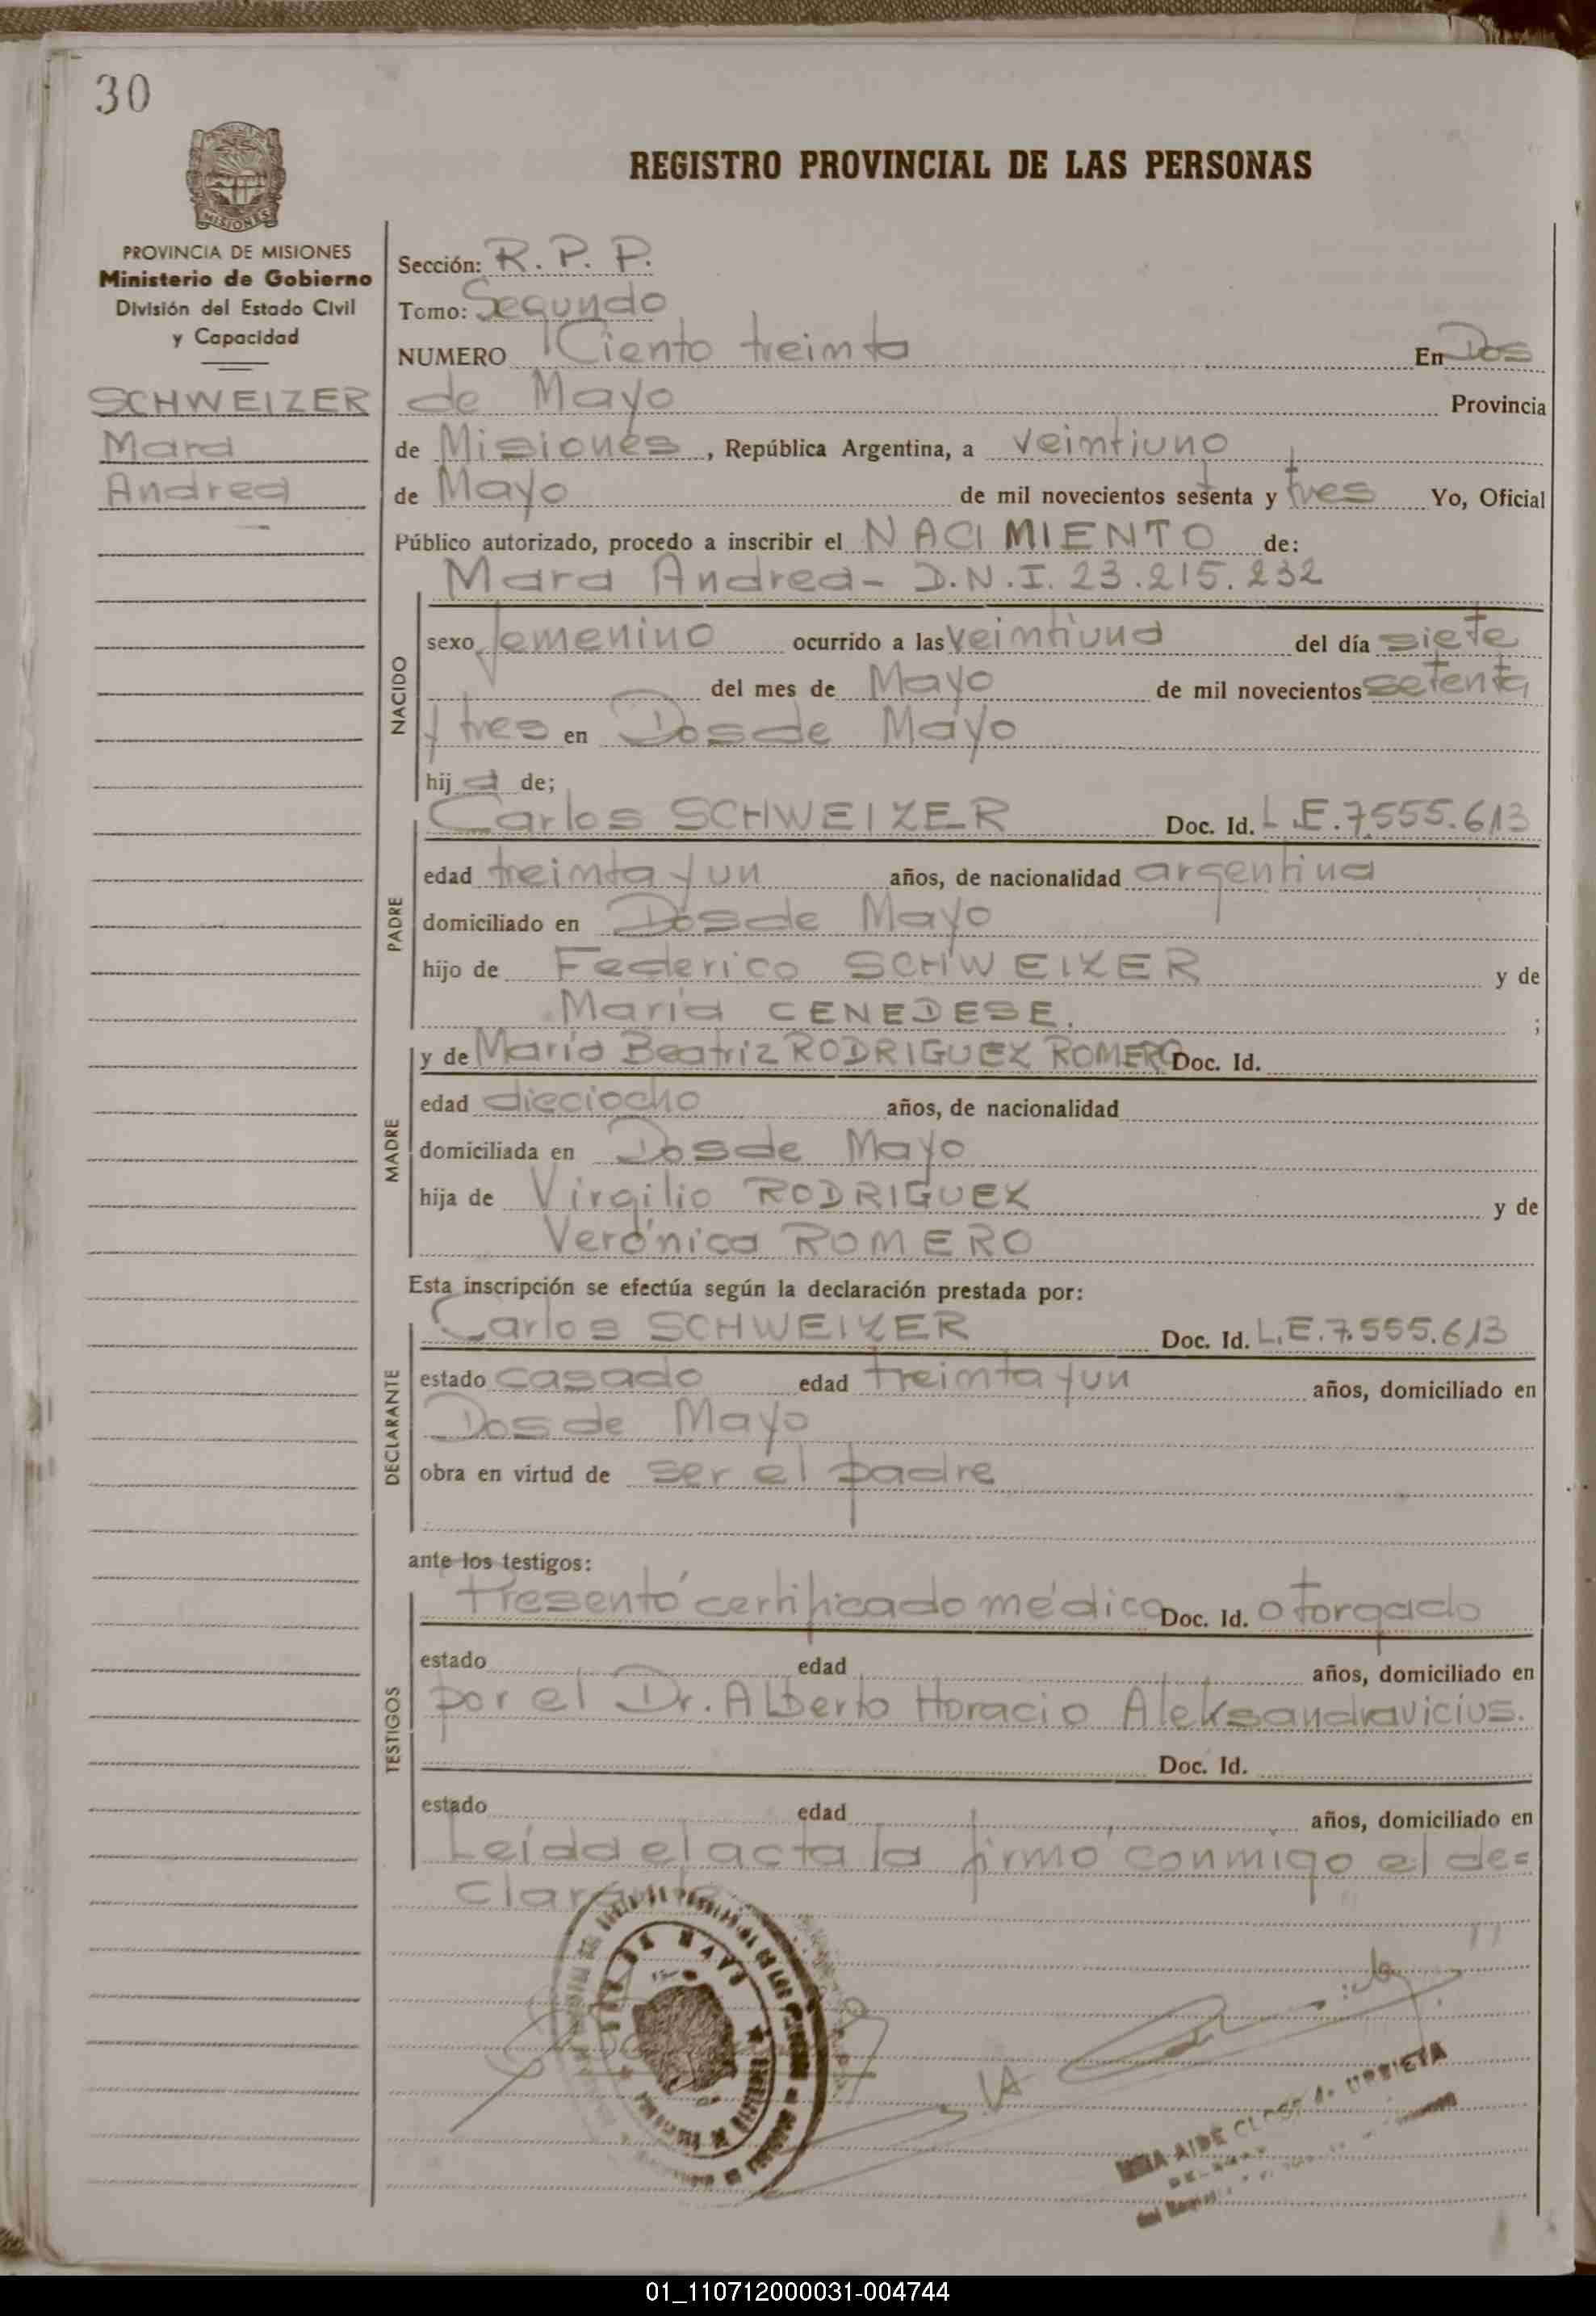 30
MISIONES
REGISTRO PROVINCIAL DE LAS PERSONAS
PROVINCIA DE MISIONES
Ministerio de Gobierno
División del Estado Civil
y Capacidad
SCHWEIZER
Mara
Andrea
Sección: R. P. P.
Tomo: Segundo
NUMERO Ciento treinta En Dos
de Mayo Provincia
de Misiones, República Argentina, a veintiuno
de Mayo de mil novecientos setenta y tres Yo, Oficial
Público autorizado, procedo a inscribir el NACIMIENTO de:
Mara Andrea- D.N.I. 23.215.232
NACIDO
sexo femenino ocurrido a las veintiuna del día siete
del mes de Mayo de mil novecientos setenta
y tres en Dos de Mayo
hija de;
PADRE
Carlos SCHWEIZER Doc. Id. L.E.7.555.613
edad treinta y un años, de nacionalidad argentina
domiciliado en Dos de Mayo
hijo de Federico SCHWEIZER y de
María CENEDESE. ;
MADRE
y de María Beatriz RODRIGUEZ ROMERO Doc. Id.
edad dieciocho años, de nacionalidad
domiciliada en Dos de Mayo
hija de Virgilio RODRIGUEZ y de
Verónica ROMERO
Esta inscripción se efectúa según la declaración prestada por:
DECLARANTE
Carlos SCHWEIZER Doc. Id. L.E.7.555.613
estado casado edad treinta y un años, domiciliado en
Dos de Mayo
obra en virtud de ser el padre
ante los testigos:
TESTIGOS
Presentó certificado médico Doc. Id. otorgado
estado edad años, domiciliado en
por el Dr. Alberto Horacio Aleksandravicius.
Doc. Id.
estado edad años, domiciliado en
Leída el acta la firmó conmigo el de=
AIDE
URBIETA
01_110712000031-004744